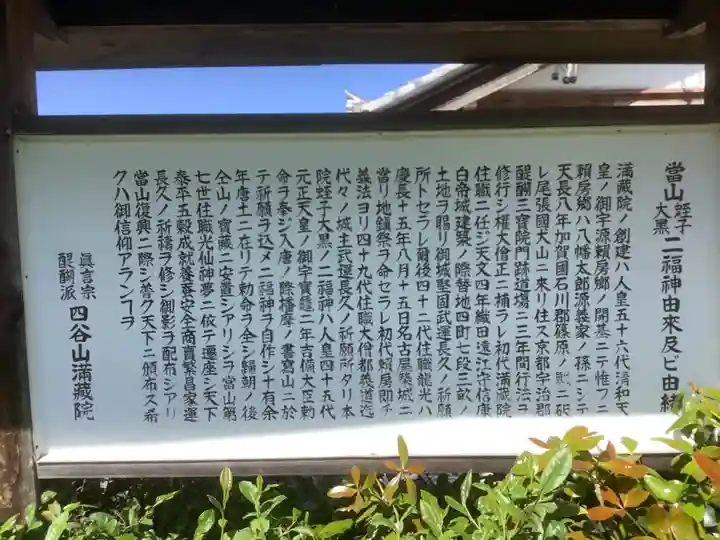 當山蛭子大黒二福神由來及ビ由緒
滿藏院ノ創建ハ人皇五十六代清和天
皇ノ御宇源頼房郷ノ開基ニテ惟フニ
頼房郷ハ八幡太郎源義家ノ孫ニシテ
天長八年加賀國石川郡篠原ノ戰ニ破
レ尾張國犬山ニ來リ住ス京都宇治郡
醍醐三寳院門跡道場ニ三年間行法ヲ
修行シ權大僧正ニ補ラレ初代滿藏院
住職ニ任ジ天文四年織田遠江守信康
白帝城建築ノ際替地四町七段三畝ノ
土地ヲ賜リ御城堅固武運長久ノ祈願
所トセラレ爾後四十二代住職龍光ハ
慶長十五年八月十五日名古屋築城ニ
當リ地鎮祭ヲ命セラレ初代頼房即チ
義法ヨリ四十九代住職大僧都義道迄
代々ノ城主武運長久ノ祈願所タリ本
院蛭子大黒ノ二福神ハ人皇四十五代
元正天皇ノ御宇寳龜二年吉備大臣勅
命ヲ奉ジ入唐ノ際播摩ノ書寫山ニ於
テ祈願ヲ込メ二福神ヲ自作シ十有余
年唐土ニ在リテ勅命ヲ全シ歸朝ノ後
仝山ノ寳藏ニ安置シアリシヲ當山第
七世住職光仙神夢ニ依テ遷座シ天下
泰平五穀成就養蚕安全商賣繁昌家運
長久ノ祈禱ヲ修シ御影ヲ配布シアリ
當山復興ニ際シ普ク天下ニ頒布ス希
クハ御信仰アランコヲ
眞言宗醍醐派 四谷山滿藏院